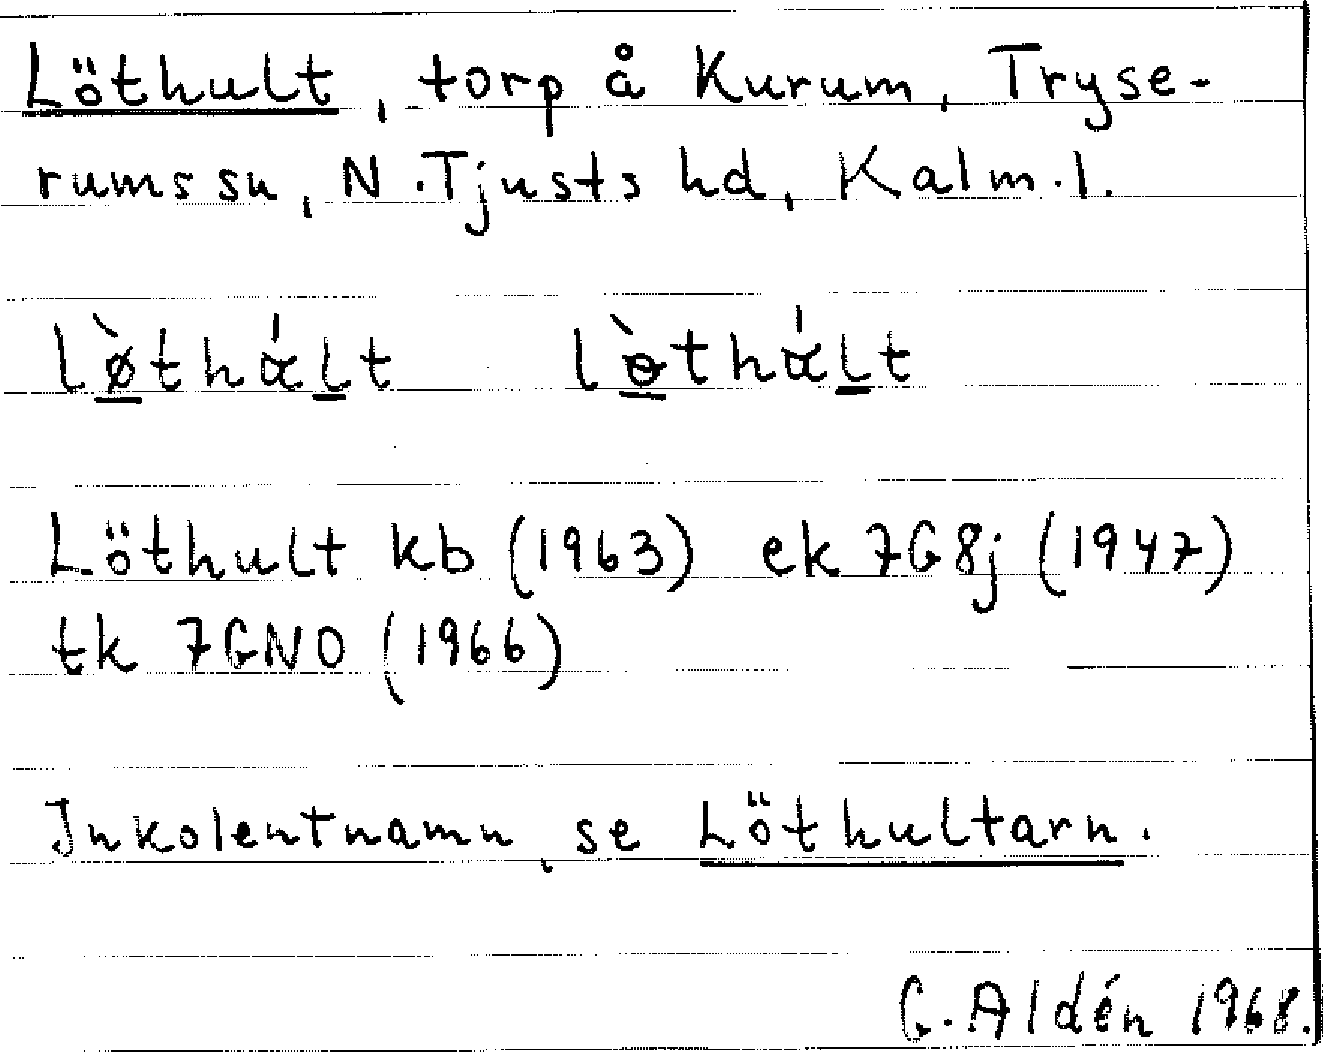 Löthult, torp å Kurum, Tryse-
rums sn, N. Tjusts hd, Kalm. l.
lø̀thált lɵ̀thált
Löthult kb (1963) ek 7G8j (1947)
tk 7GNO (1966)
Inkolentnamn, se Löthultarn.
G. Aldén 1968.